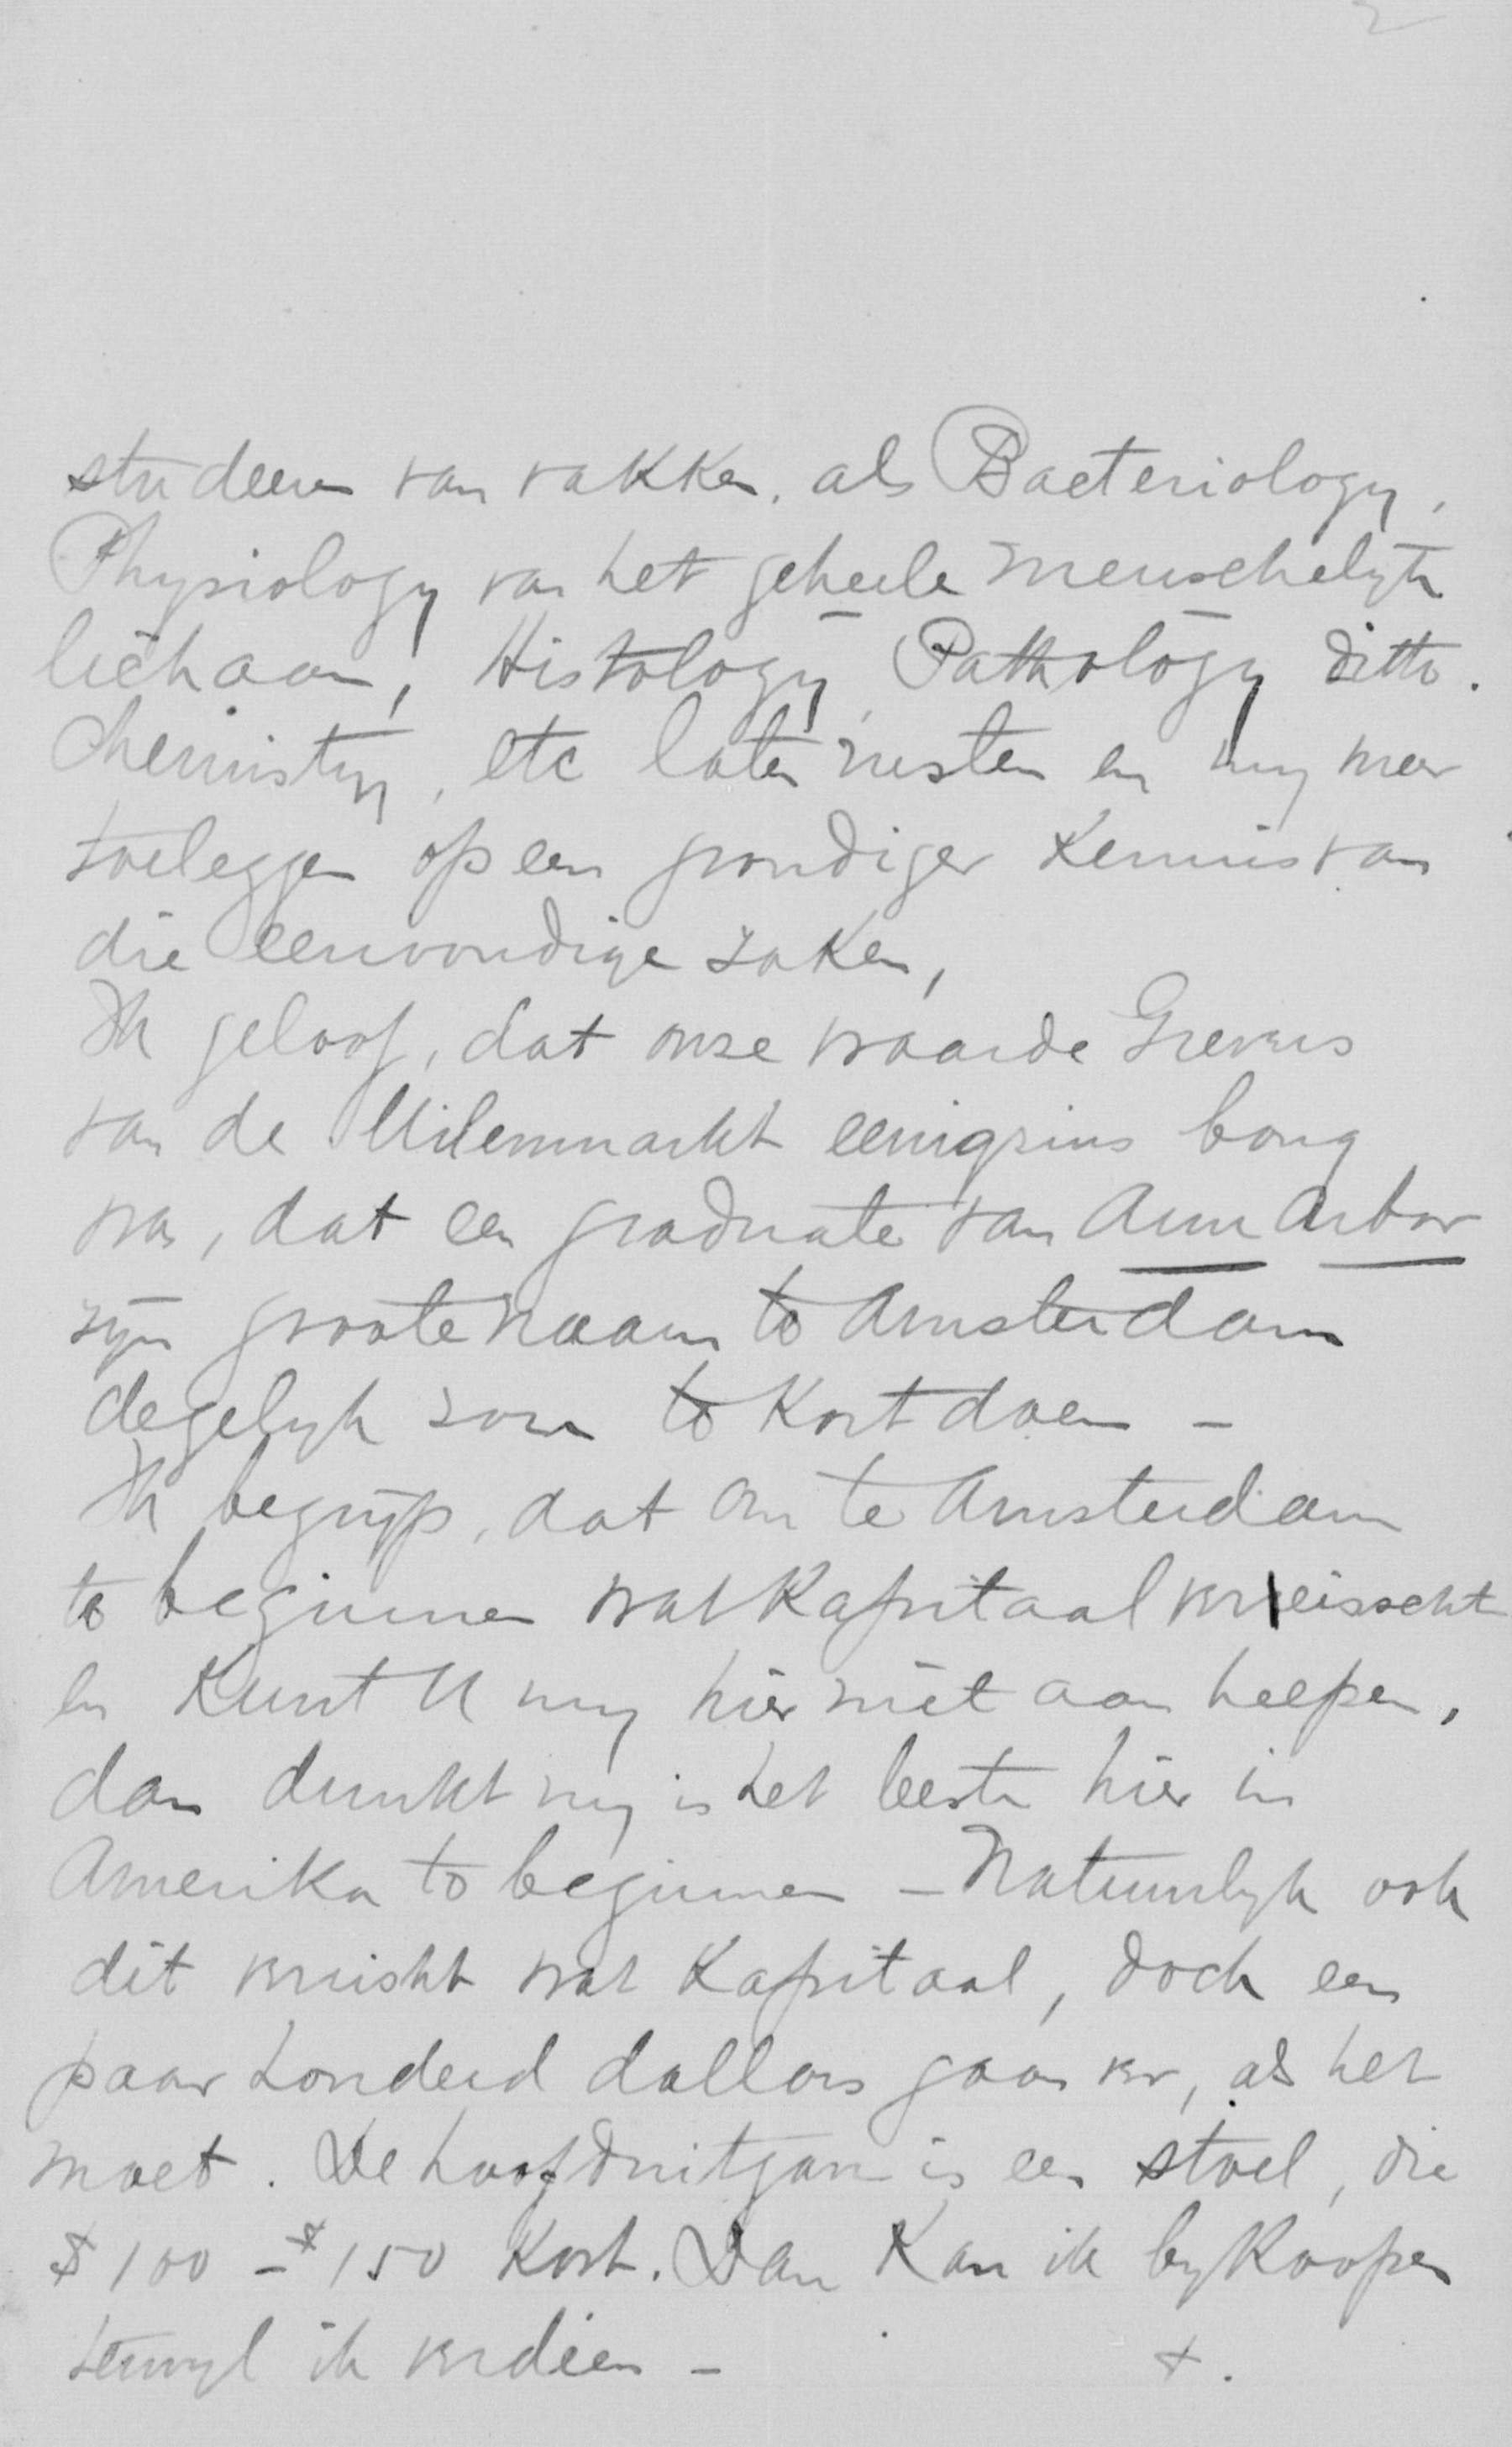 2
studeeren van vakken, als Bacteriology,
Physiology van het geheele menschelijk
lichaam, Histology, Pathology ditto.
Chemistry, etc laten rusten en my meer
toeleggen op een grondiger kennis van
die eenvoudige zaken,
Ik geloof, dat onze waarde Grevers
van de Uilenmarkt eenigzins bang
was, dat een graduate van Ann Arbor
zyn groote naam te Amsterdam
degelyk zou te kort doen -
Ik begrijp, dat om te Amsterdam
te beginnen wat Kapitaal vereisscht
en kunt U my hier niet aan helpen,
dan dunkt my is het beste hier in
Amerika te beginnen - Natuurlyk ook
dit vereischt wat Kapitaal, doch een
paar honderd dollars gaan ver, als het
moet. De hoofduitgave is een stoel, die
$100 - $150 kost. Dan kan ik bykoopen
terwyl ik verdien - +.